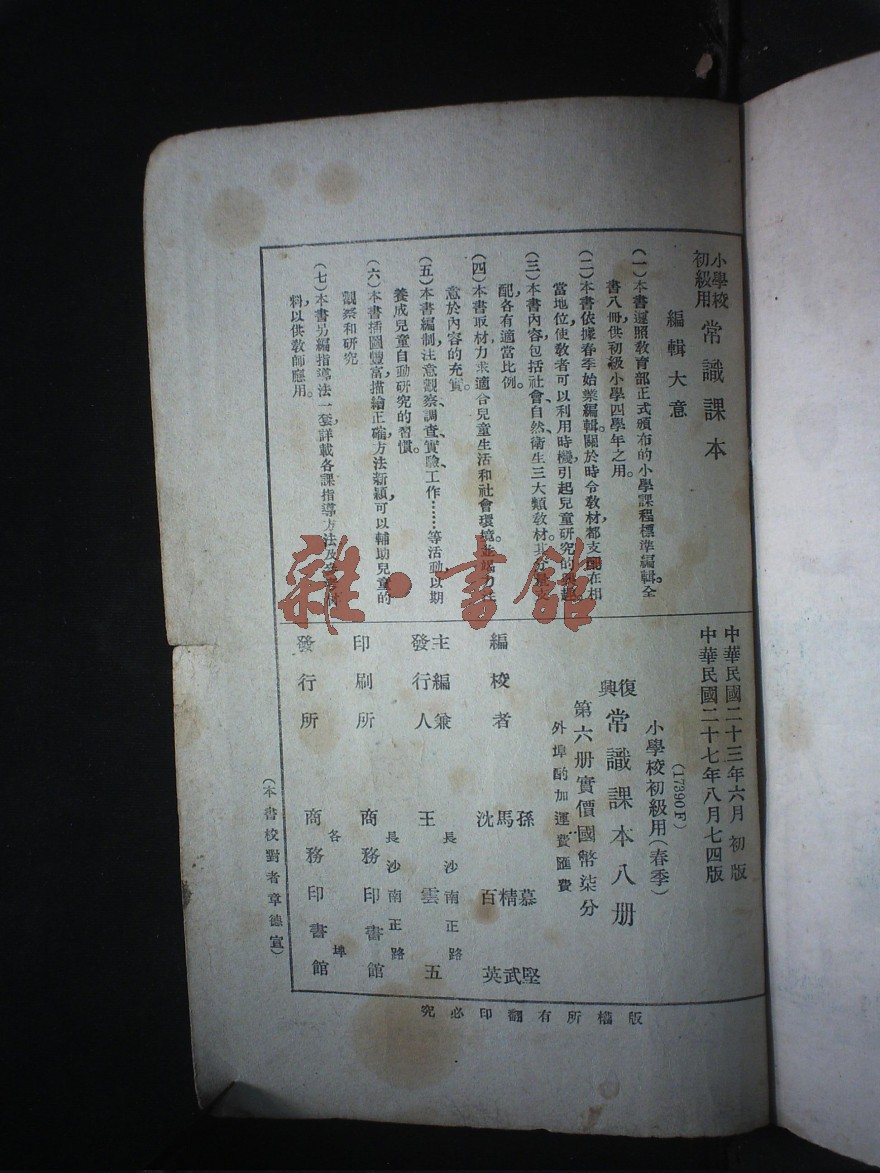 小學校
初級用
常識課本
編輯大意
（一）本書遵照敎育部正式頒布的小學課程標準編輯。全
書八冊，供初級小學四學年之用。
（二）本書依據春季始業編輯。關於時令敎材，都支配在相
當地位，使敎者可以利用時機，引起兒童研究的興趣。
（三）本書內容，包括社會、自然、衞生三大類敎材。其分量支
配，各有適當比例。
（四）本書取材，力求適合兒童生活和社會環境，並竭力注
意於內容的充實。
（五）本書編制，注意觀察、調查、實驗、工作……等活動，以期
養成兒童自動研究的習慣。
（六）本書插圖豐富，描繪正確，方法新穎，可以輔助兒童的
觀察和研究
（七）本書另編指導法一套，詳載各課指導方法及
料，以供敎師應用。
中華民國二十三年六月初版
中華民國二十七年八月七四版
(17390F)
小學校初級用（春季）
復興常識課本八册
第六册實價國幣柒分
外埠酌加運費匯費
編校者
孫慕堅
馬精武
沈百英
主編兼發行人
長沙南正路
王雲五
印刷所
長沙南正路
商務印書館
發行所
各埠
商務印書館
（本書校對者章德宣）
版權所有翻印必究
雜·書館